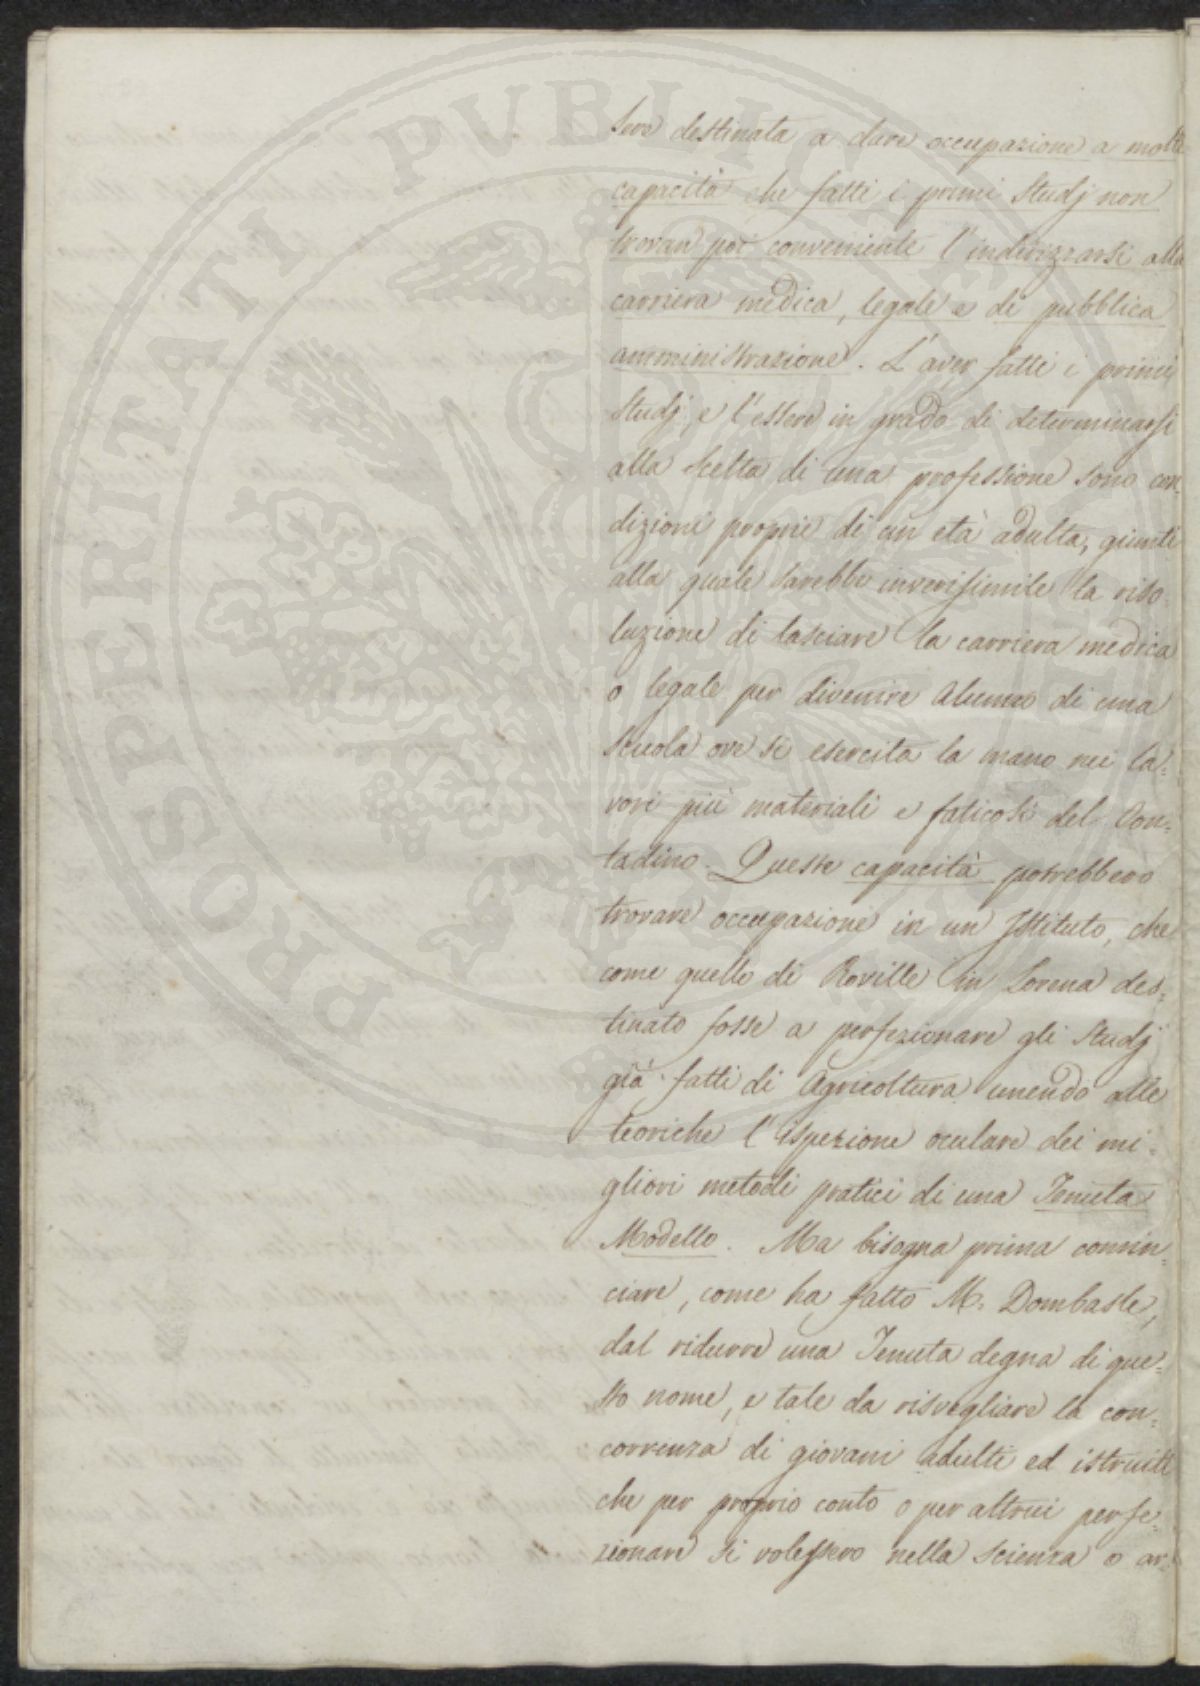 sere destinata a dare occupazione a molte
capacità che fatti i primi Studj non
trovan poi conveniente l'indirizzarsi alla
carriera medica, legale e di pubblica
amministrazione. L'aver fatti i primi
Studj, e l'essere in grado di determinarsi
alla Scelta di una professione sono con-
dizioni proprie di un età adulta, giunti
alla quale sarebbe inverisimile la riso-
luzione di lasciare la carriera medica
o legale per divenire Alunno di una
Scuola ove si esercita la mano nei la=
vori più materiali e faticosi del Con=
tadino. Queste capacità potrebbero
trovare occupazione in un Istituto, che
come quello di Roville in Lorena des=
tinato fosse a perfezionare gli Studj
già fatti di Agricoltura unendo alle
teoriche l'ispezione oculare dei mi=
gliori metodi pratici di una Tenuta
Modello. Ma bisogna prima comin=
ciare, come ha fatto M. Dombasle,
dal ridurre una Tenuta degna di que=
sto nome, e tale da risvegliare la con=
correnza di giovani adulti ed istruiti
che per proprio conto o per altrui perfe=
zionare si volessero nella scienza o ar=
PROSPERITATI PUBLICAE